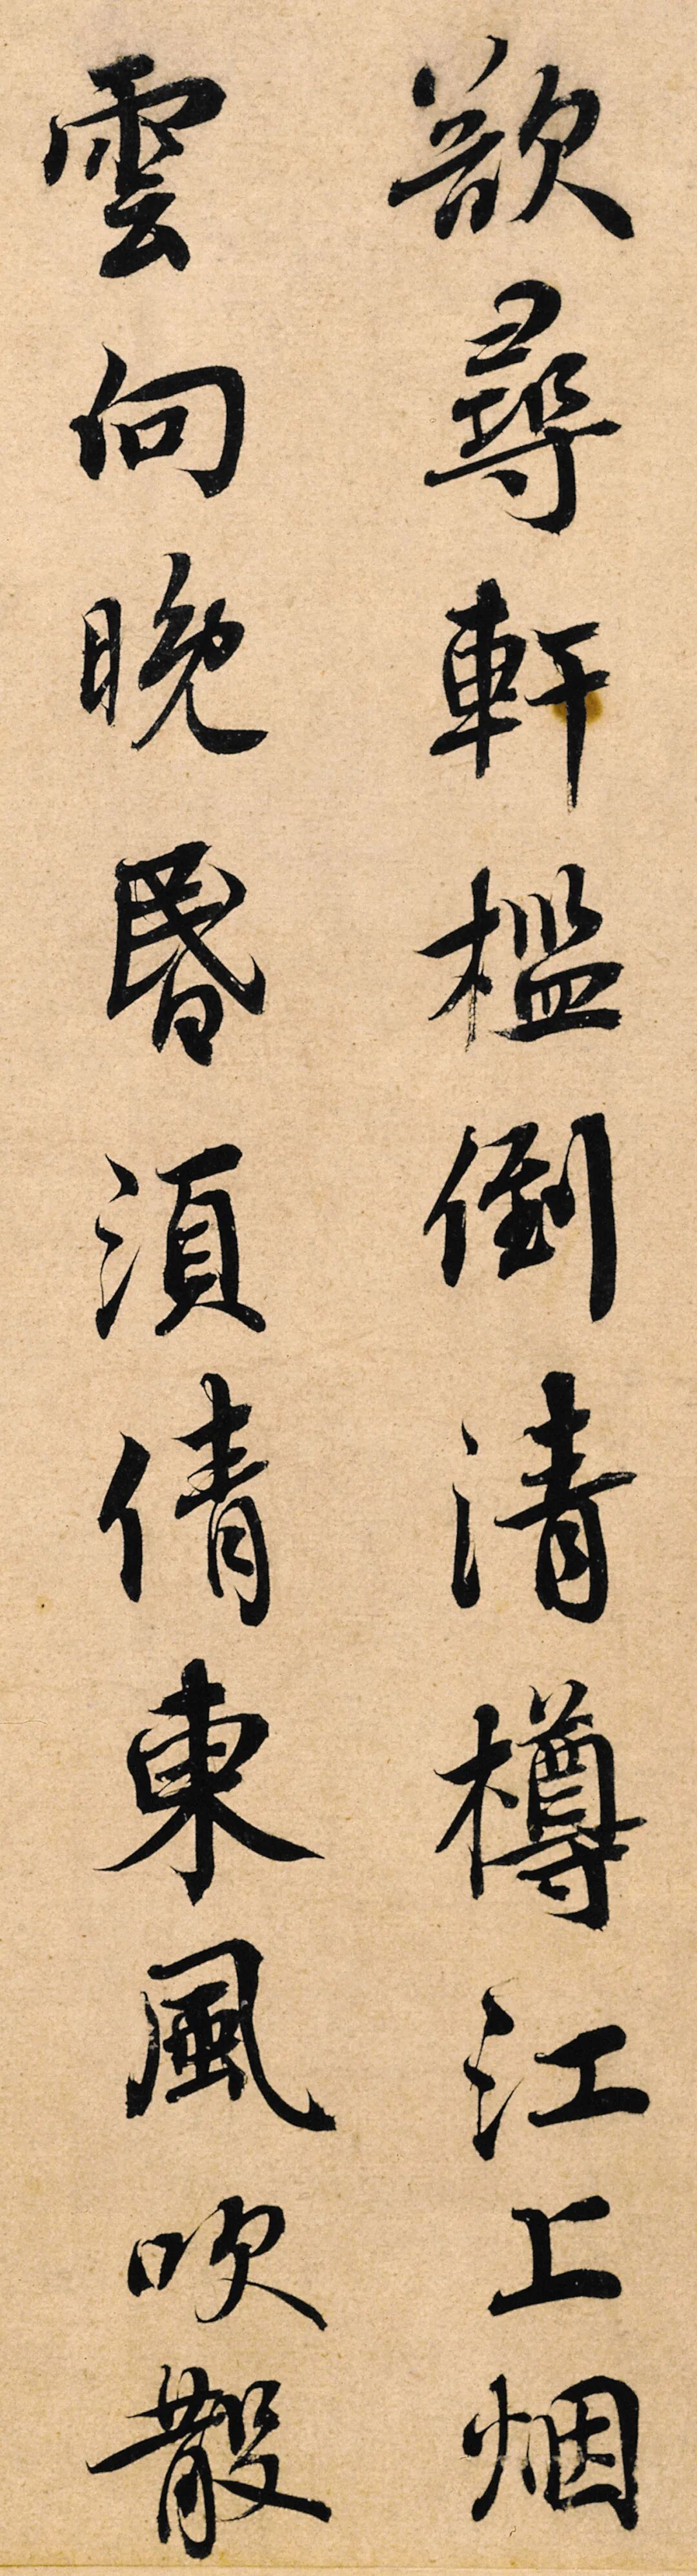 欲尋軒檻倒清樽江上烟
雲向晚昬須倩東風吹散